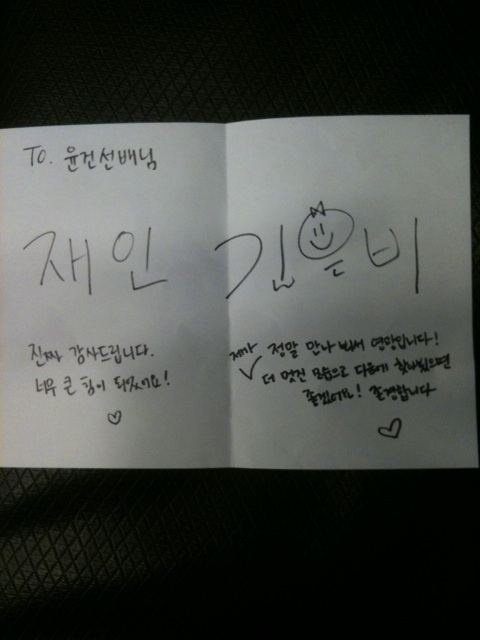 To. 윤건선배님
재인
진짜 감사드립니다.
너무 큰 힘이 되었어요!
김은비
제가 정말 만나 봬서 영광입니다!
더 멋진 모습으로 다음에 찾아뵀으면
좋겠어요! 존경합니다